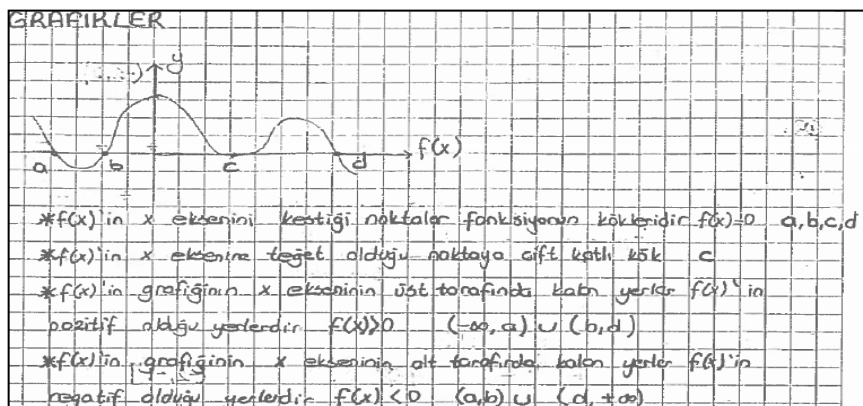 GRAFIKLER
y
f(x)
a b c d
*f(x)'in x eksenini kestiği noktalar fonksiyonun kökleridir f(x)=0 a,b,c,d
*f(x)'in x eksenine teğet olduğu noktaya çift katlı kök c
*f(x)'in grafiğinin x ekseninin üst tarafında kalan yerler f(x)'in
pozitif olduğu yerlerdir f(x)>0 (-∞,a) ∪ (b,d)
*f(x)'in grafiğinin x ekseninin alt tarafında kalan yerler f(x)'in
negatif olduğu yerlerdir f(x)<0 (a,b) ∪ (d,+∞)